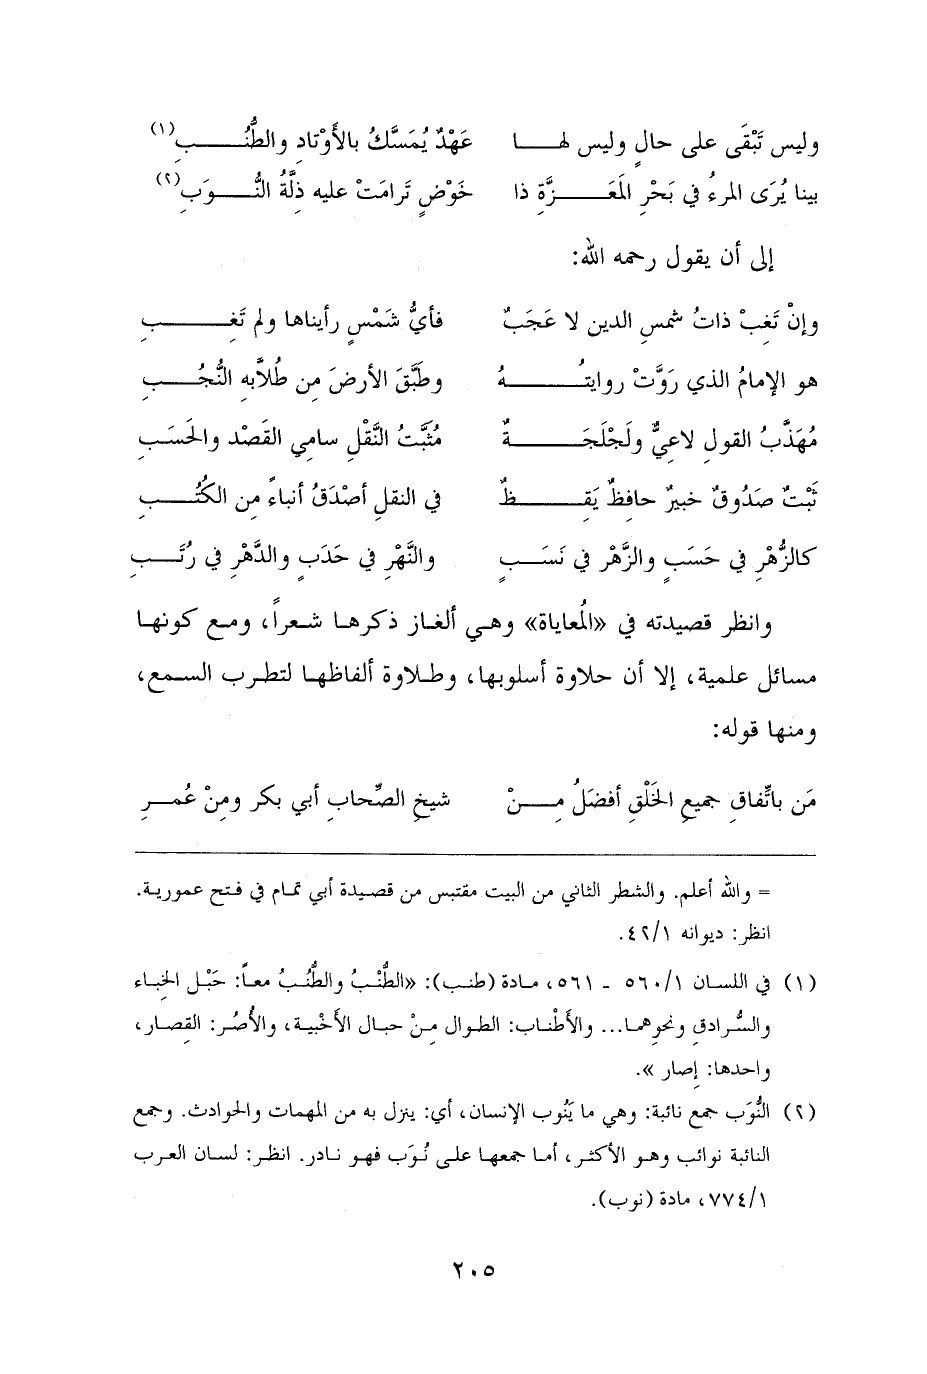 وليس تَبْقَى على حالٍ وليس لهـــا عَهْدٌ يُمَسَّكُ بالأَوْتادِ والطُّنُـــــبِ(١)
بينا يُرَى المرءُ في بَحْرِ المَعَـــــزَّةِ ذا خَوْضٍ تَرامَتْ عليه ذلَّةُ النُّـــوَبِ(٢)
إلى أن يقول رحمه الله:
وإنْ تَغِبْ ذاتُ شمسِ الدين لا عَجَبٌ فأيُّ شَمْسٍ رأيناها ولم تَغِـــــبِ
هو الإمامُ الذي رَوَّتْ روايتُـــــهُ وطَبَّقَ الأرضَ مِن طُلاَّبِه النُّجُـــبِ
مُهَذَّبُ القولِ لاعِيٌّ ولَجْلَجَـــــةٌ مُثَبَّتُ النَّقْلِ سامي القَصْدِ والحَسَبِ
ثَبْتٌ صَدُوقٌ خبيرٌ حافظٌ يَقِـــــظٌ في النقلِ أصْدَقُ أنباءً مِن الكُتُـــبِ
كالزُّهْرِ في حَسَبٍ والزَّهْرِ في نَسَـــبٍ والنَّهْرِ في حَدَبٍ والدَّهْرِ في رُتَـــبِ
وانظر قصيدته في «المُعاياة» وهي ألغاز ذكرها شعراً، ومع كونها
مسائل علمية، إلا أن حلاوة أسلوبها، وطلاوة ألفاظها لتطرب السمع،
ومنها قوله:
مَن باتِّفاقِ جميعِ الخَلْقِ أفضَلُ مِـــنْ شيخِ الصِّحابِ أبي بكر ومِنْ عُمـرِ
= والله أعلم. والشطر الثاني من البيت مقتبس من قصيدة أبي تمام في فتح عمورية.
انظر: ديوانه ٤٢/١.
(١) في اللسان ٥٦٠/١ ـ ٥٦١، مادة (طنب): «الطُّنْبُ والطُّنُبُ معاً: حَبْل الخِباء
والسُّرادقِ ونحوهما... والأَطْناب: الطوال مِنْ حبال الأَخْبية، والأُصُر: القِصار،
واحدها: إصار ».
(٢) النُّوَب جمع نائبة: وهي ما يَنُوب الإنسان، أي: ينزل به من المهمات والحوادث. وجمع
النائبة نوائب وهو الأكثر، أما جمعها على نُوَب فهو نادر. انظر: لسان العرب
٧٧٤/١، مادة (نوب).
٢٠٥